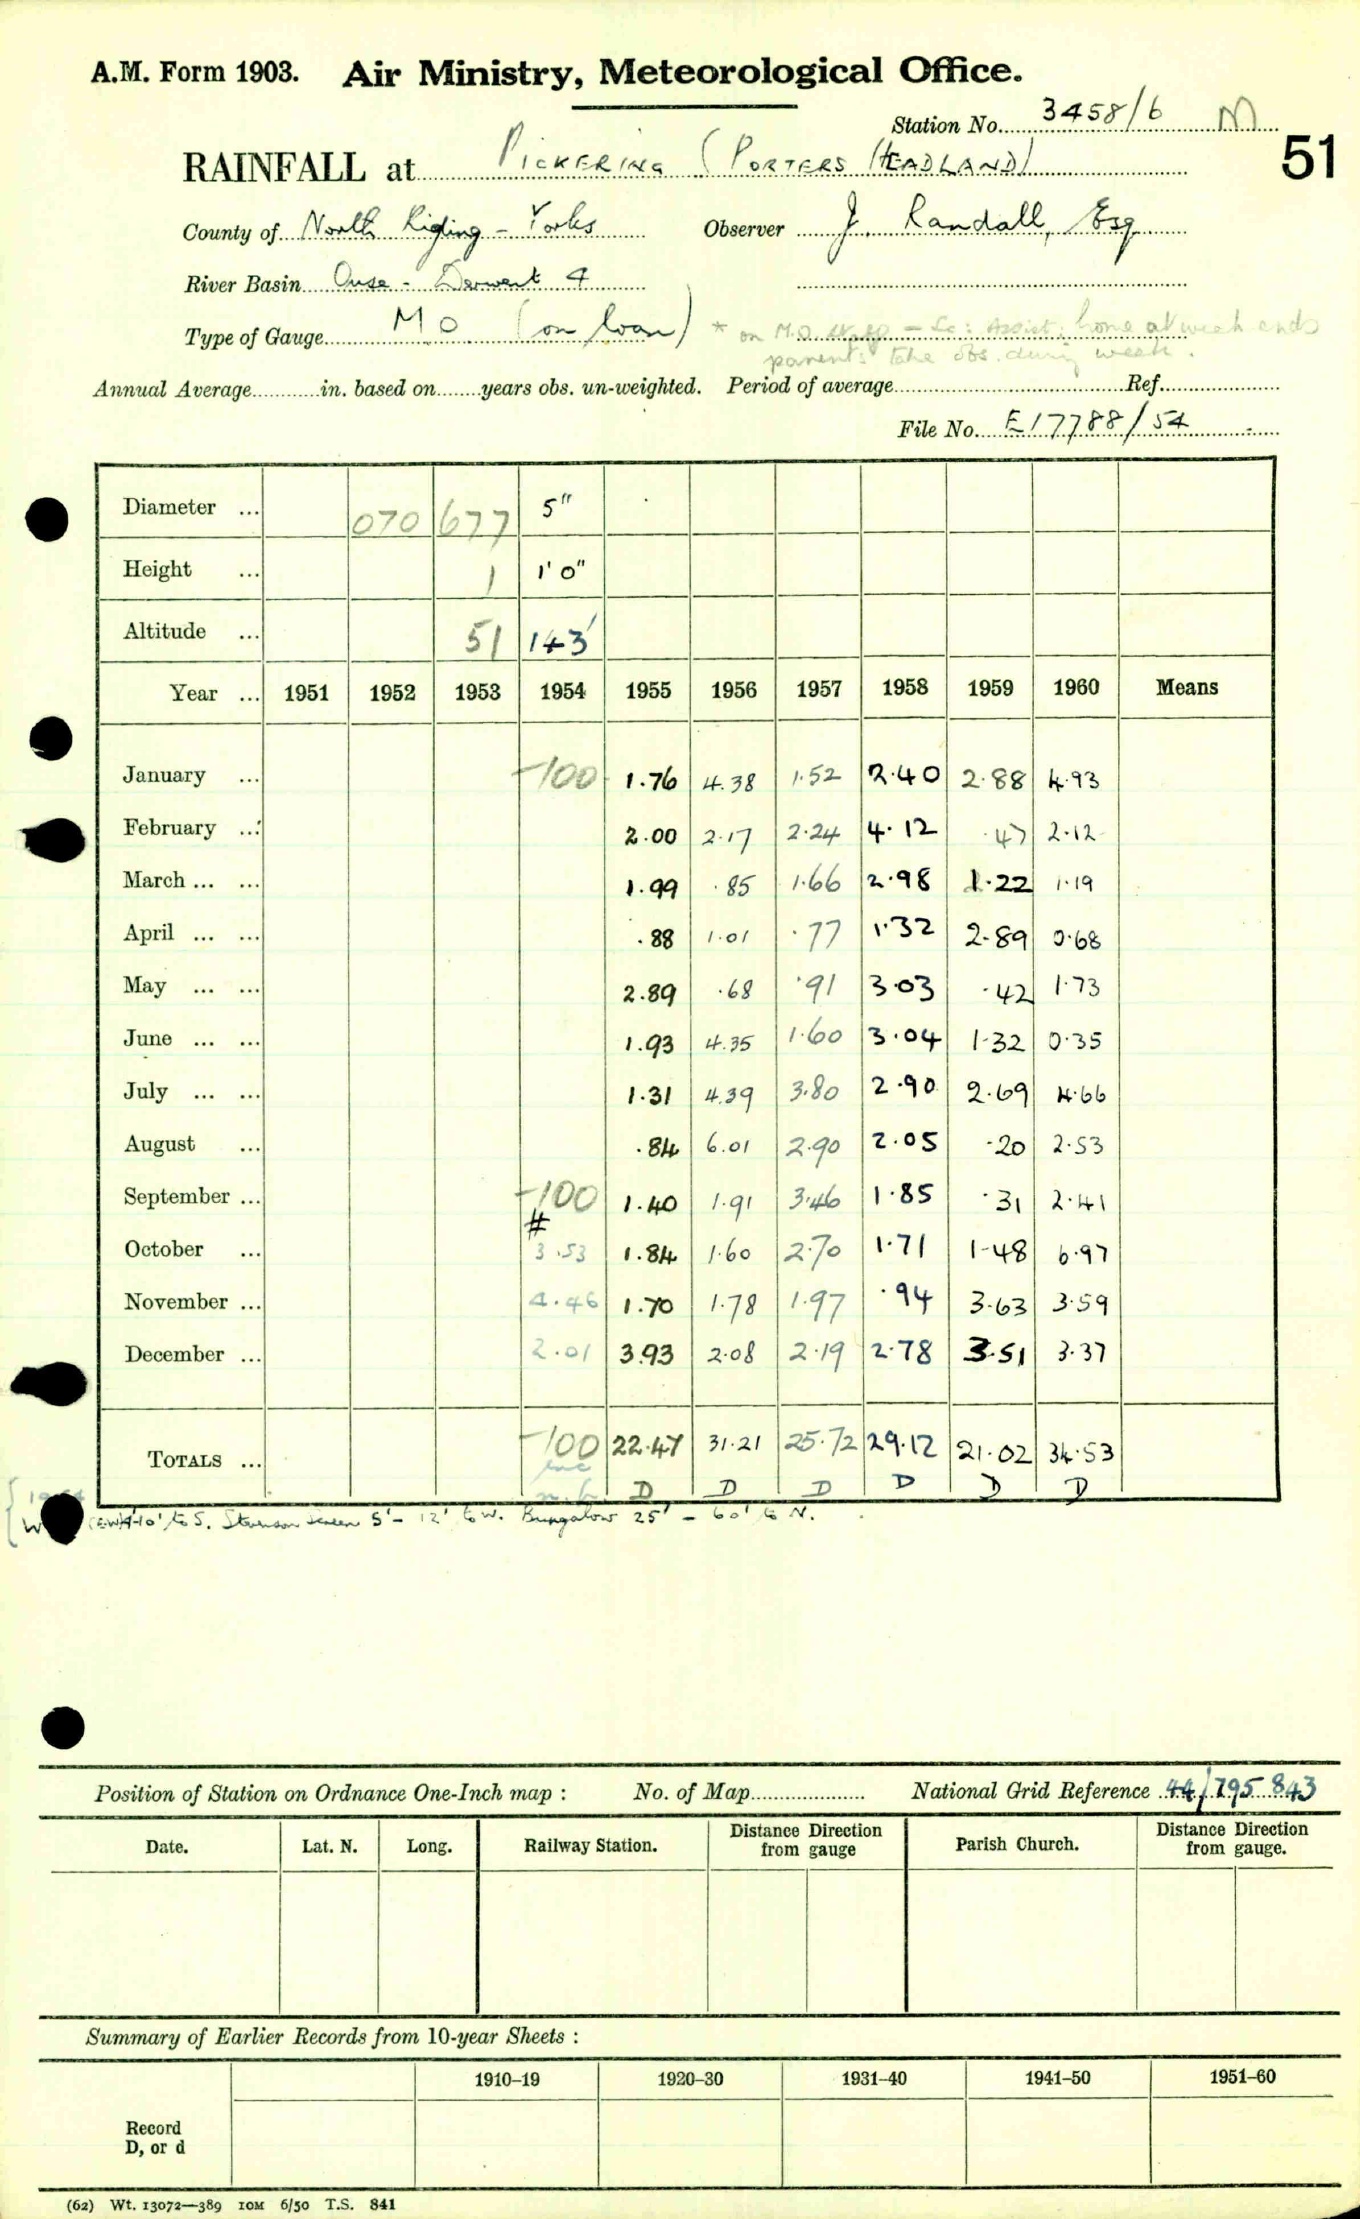 A.M. Form 1903. Air Ministry, Meteorological Office.
Station No. 3458/6 M
51
RAINFALL at PICKERING (PORTERS HEADLAND)
County of North Riding - Yorks Observer J. Randall, Esq
River Basin Ouse - Derwent 4
Type of Gauge MO (on loan) * on M.O. Staff - Sc: Assist: home at week ends
parents take obs. during week.
Annual Average in. based on years obs. un-weighted. Period of average Ref.
File No. E17788/54
Diameter ... 070 677 5"
Height ... 1 1' 0"
Altitude ... 51 143'
Year ... 1951 1952 1953 1954 1955 1956 1957 1958 1959 1960 Means
January ... -100 1.76 4.38 1.52 2.40 2.88 4.93
February ... 2.00 2.17 2.24 4.12 .47 2.12
March ... ... 1.99 .85 1.66 2.98 1.22 1.19
April ... ... .88 1.01 .77 1.32 2.89 0.68
May ... ... 2.89 .68 .91 3.03 .42 1.73
June ... ... 1.93 4.35 1.60 3.04 1.32 0.35
July ... ... 1.31 4.39 3.80 2.90 2.69 4.66
August ... .84 6.01 2.90 2.05 .20 2.53
September ... -100 1.40 1.91 3.46 1.85 .31 2.41
#
October ... 3.53 1.84 1.60 2.70 1.71 1.48 6.97
November ... 4.46 1.70 1.78 1.97 .94 3.63 3.59
December ... 2.01 3.93 2.08 2.19 2.78 3.51 3.37
TOTALS ... -100 22.47 31.21 25.72 29.12 21.02 34.53
inc
D D D D D D
to S. Stevenson screen 5' - 12' to W. Bungalow 25' - 60' to N.
Position of Station on Ordnance One-Inch map : No. of Map National Grid Reference 44/795 843
Date. Lat. N. Long. Railway Station. Distance Direction from gauge Parish Church. Distance Direction from gauge.
Summary of Earlier Records from 10-year Sheets :
1910–19 1920–30 1931–40 1941–50 1951–60
Record
D, or d
(62) Wt. 13072—389 10M 6/50 T.S. 841